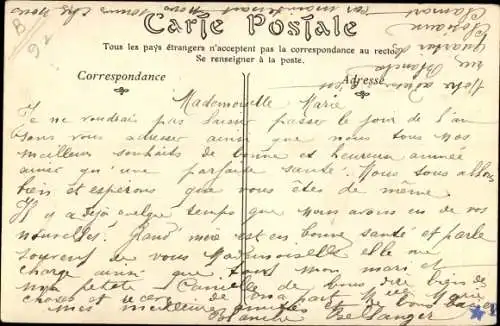 B
92
Carte Postale
Tous les pays étrangers n'acceptent pas la correspondance au recto
Se renseigner à la poste.
Correspondance
Adresse
Notre adresse est
rue Blanche
quartier de
Clamart
car maintenant nous
chez nous
Mademoiselle Marie
Je ne voudrais pas laisser passer le jour de l'an
Sans vous adresser ainsi que nous tous nos
meilleur souhaits de bonne et heureuse année
ainsi qu'une parfaite santé. Nous tous allons
bien et esperons que vous êtes de même.
Il y a déjà quelque temps que nous avons eu de vos
nouvelles. Grand mère est en bonne santé et parle
souvent de vous Mademoiselle elle me
charge ainsi que tous mon mari et
ma petite Camille de vous dire bien des
choses et recevez de ma part Melle Marie
mes meilleures amitiés et de bons baisers
Blanche Bellanger